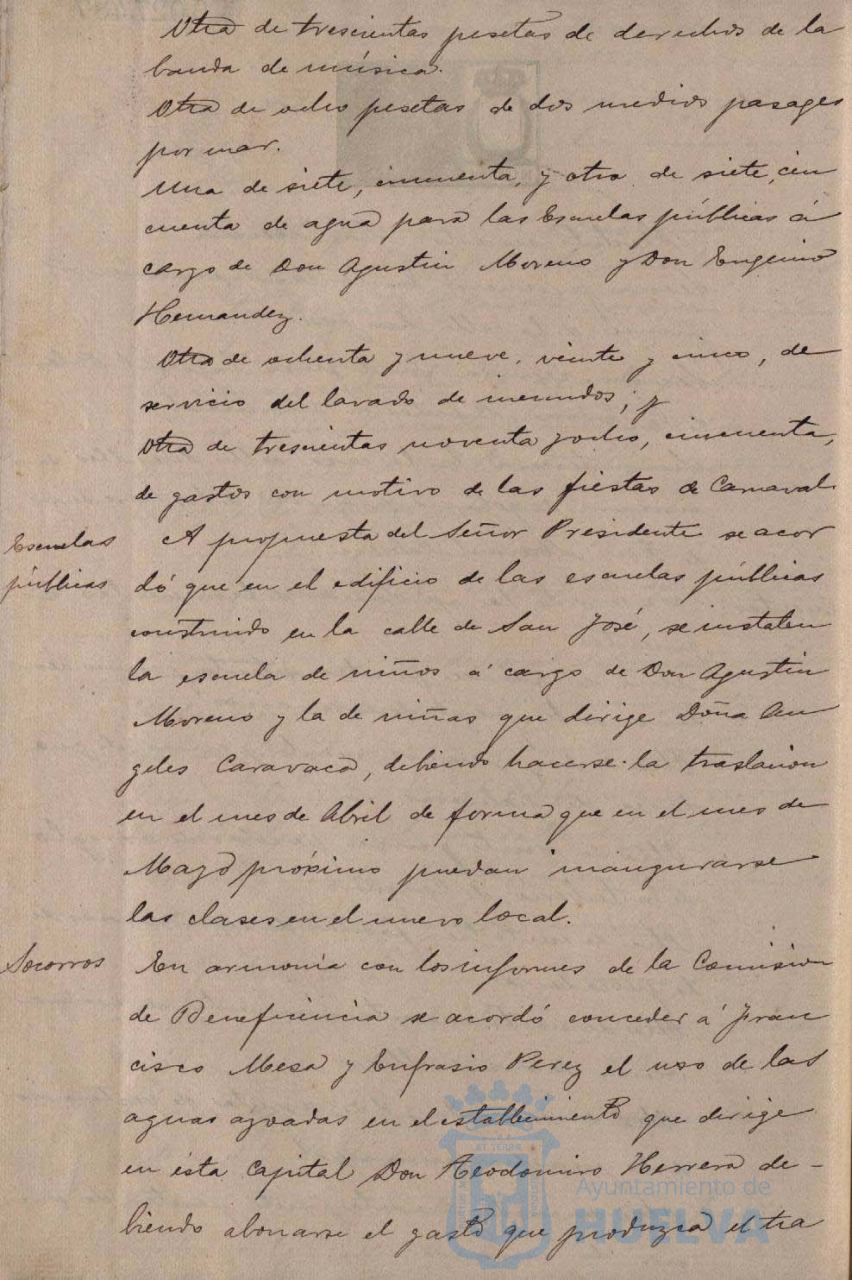 Otra de trescientas pesetas de derechos de la
banda de música.
Otra de ocho pesetas de dos medios pasages
por mar.
Una de siete, cincuenta, y otra de siete, cin
cuenta de agua para las Escuelas públicas á
cargo de Don Agustin Moreno y Don Eugenio
Hernandez.
Otra de ochenta y nueve, veinte y cinco, de
servicio del lavado de inmundos; y
Otra de trescientas noventa y ocho, cincuenta,
de gastos con motivo de las fiestas de Carnaval.
Escuelas
públicas
A propuesta del Señor Presidente se acor
dó que en el edificio de las escuelas públicas
construido en la calle de San José, se instalen
la escuela de niños á cargo de Don Agustin
Moreno y la de niñas que dirige Doña An
geles Caravaca, debiendo hacerse la traslacion
en el mes de Abril de forma que en el mes de
Mayo próximo puedan inaugurarse
las clases en el nuevo local.
Socorros
En armonia con los informes de la Comision
de Beneficiencia se acordó conceder á Fran
cisco Mesa y Eufrasio Perez el uso de las
aguas azoadas en el establecimiento que dirige
en ésta Capital Don Teodomiro Herrera de-
biendo abonarse el gasto que produzca el tra
Ayuntamiento de
HUELVA